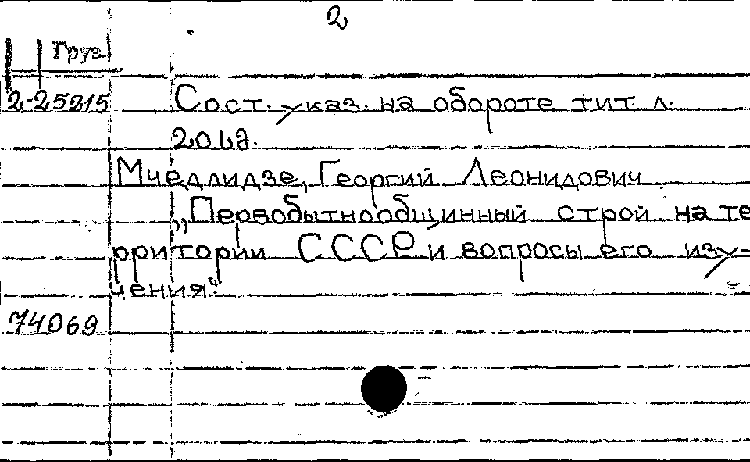 2
Груз
2-25215 Сост. указ. на обороте тит. л.
Мчедлидзе, Георгий Леонидович
„Первобытнообщинный строй на те
рритории СССР и вопросы его изу-
чения“
74069